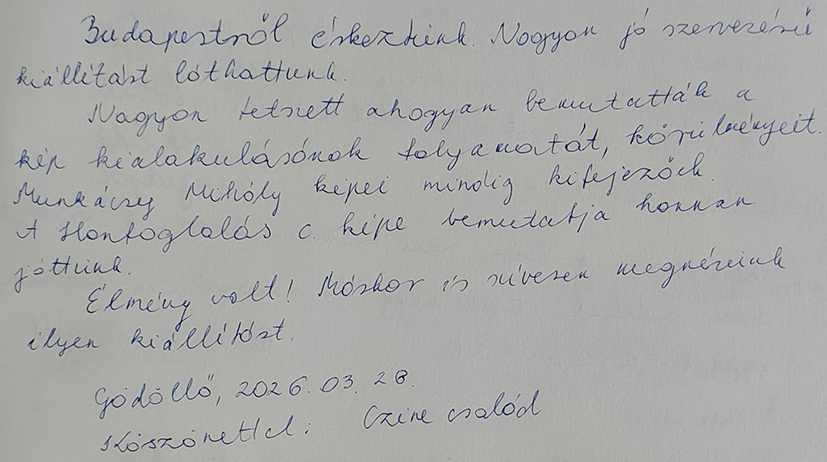 Budapestről érkeztünk. Nagyon jó szervezésű
kiállítást láthattunk.
Nagyon tetszett ahogyan bemutatták a
kép kialakulásának folyamatát, körülményeit.
Munkácsy Mihály képei mindig kifejezőek.
A Honfoglalás c. képe bemutatja honnan
jöttünk.
Élmény volt! Máskor is szívesen megnéznénk
ilyen kiállítást.
Gödöllő, 2026.03.28.
Köszönettel: Czine család